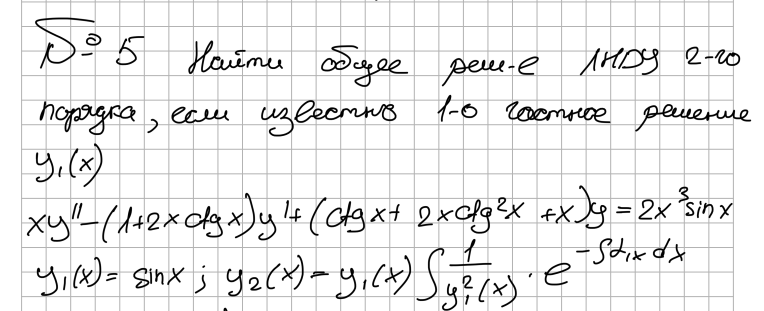 № 5 Найти общее реш-е ЛНДУ 2-го
порядка, если известно 1-о частное решение
y₁(x)
xy'' - (1+2x ctg x)y' + (ctg x + 2x ctg²x + x)y = 2x³ sin x
y₁(x) = sin x ; y₂(x) = y₁(x) ∫ 1/y₁²(x) · e^(-∫α₁x dx)